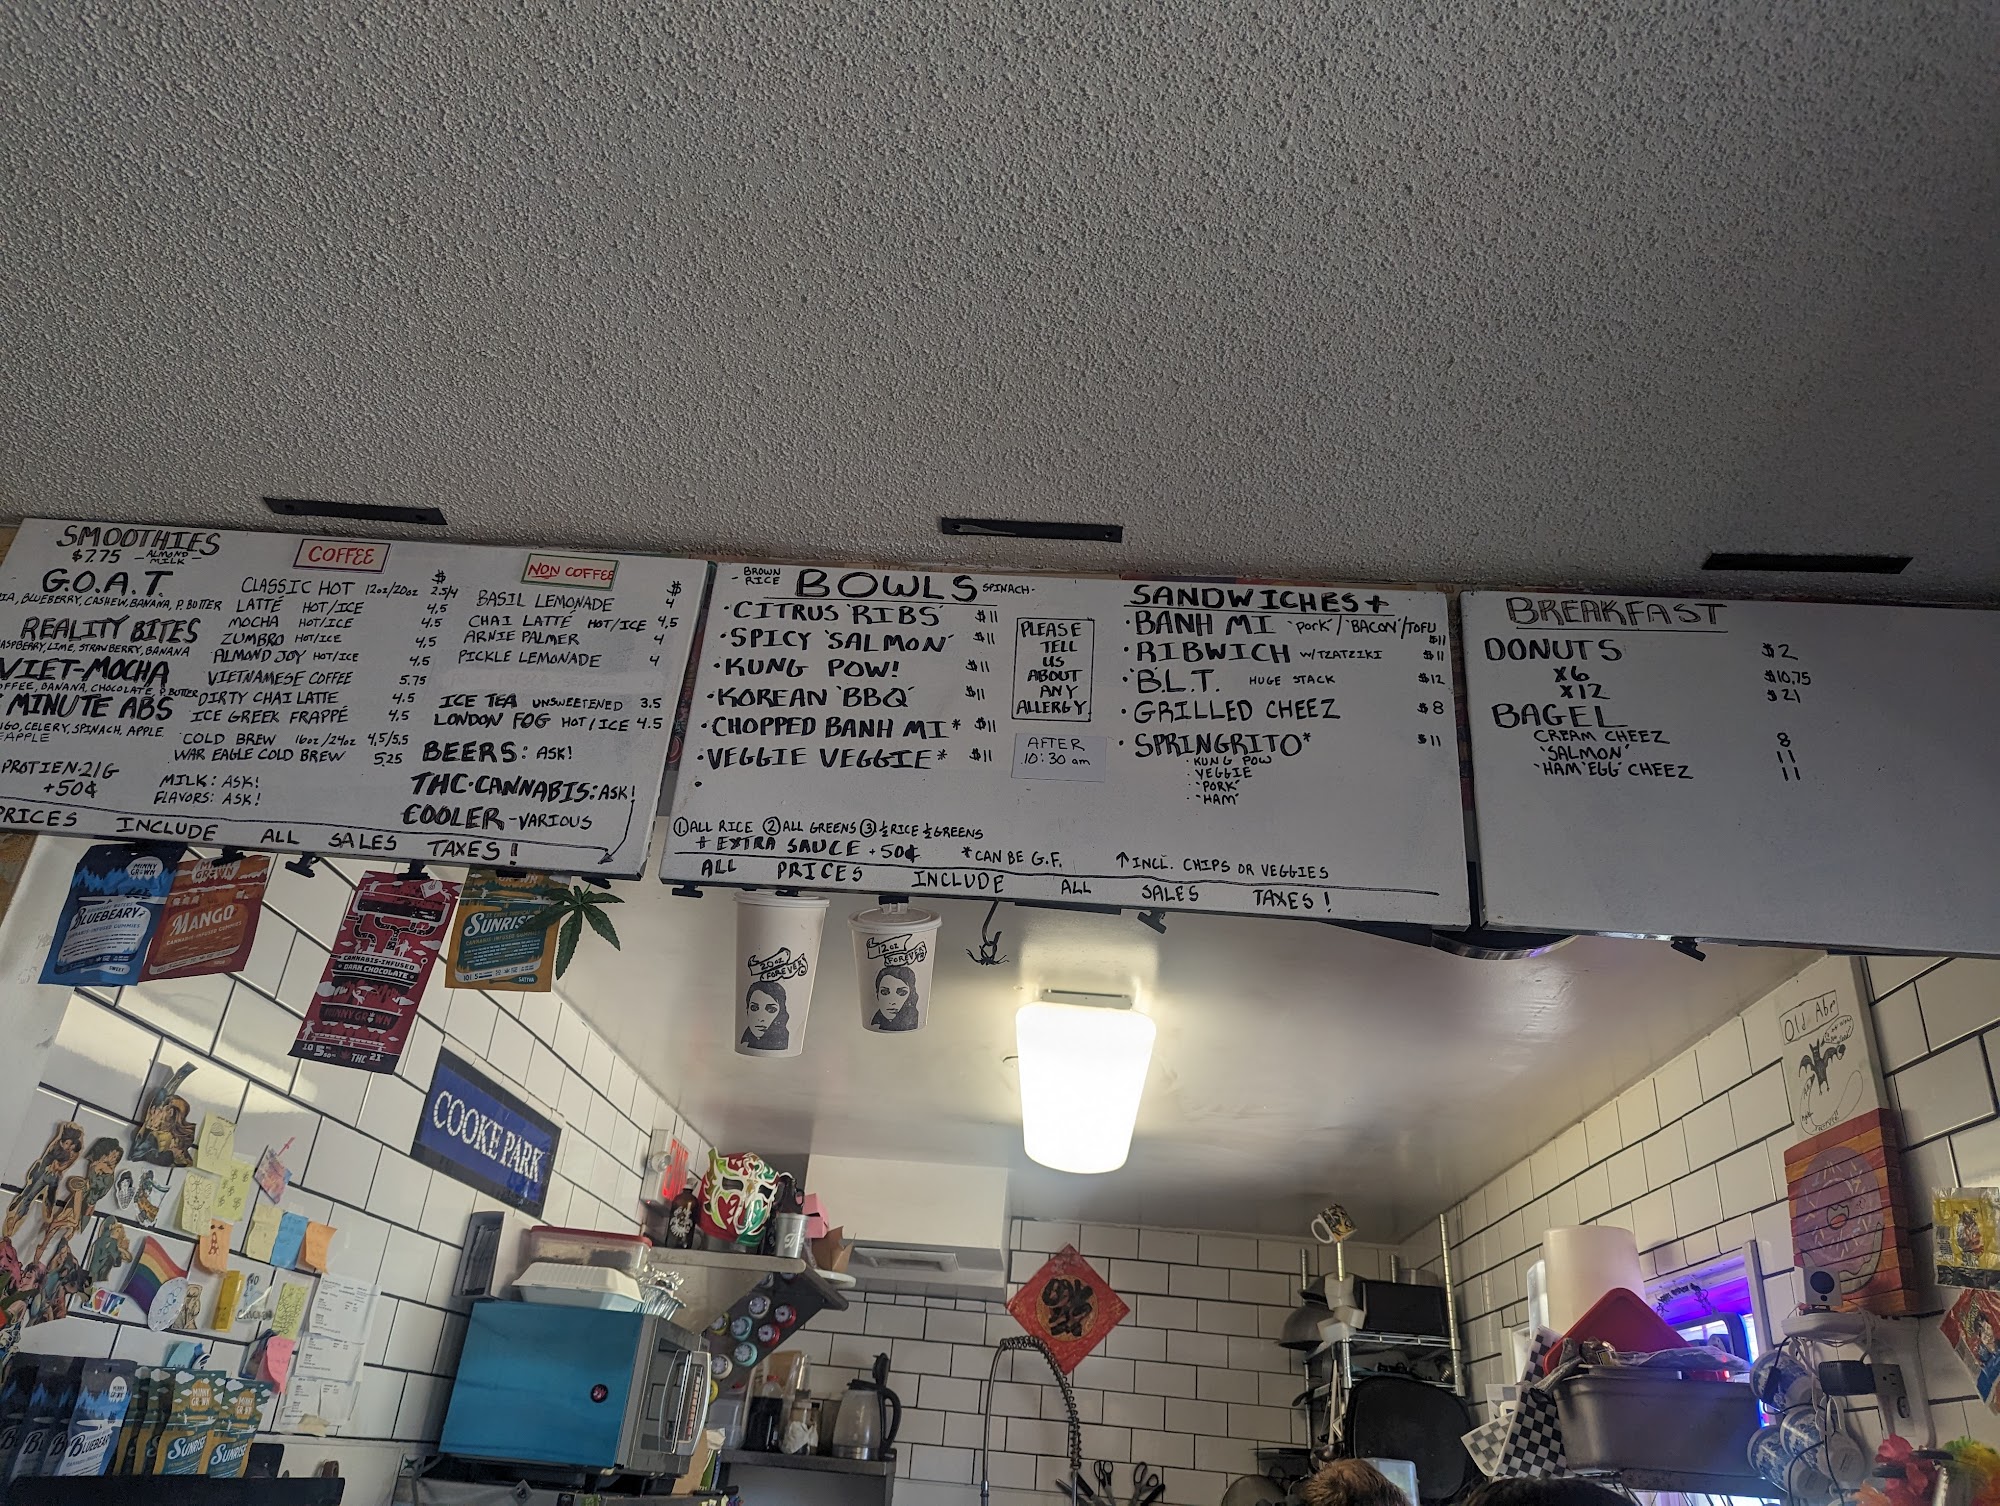 SMOOTHIES
$7.75 -ALMOND MILK-
G.O.A.T.
BLUEBERRY, CASHEW, BANANA, P. BUTTER
REALITY BITES
RASPBERRY, LIME, STRAWBERRY, BANANA
VIET-MOCHA
COFFEE, BANANA, CHOCOLATE, P. BUTTER
MINUTE ABS
CELERY, SPINACH, APPLE
PROTIEN-21G
+50¢
COFFEE
$
CLASSIC HOT 12oz/20oz 2.5/4
LATTÉ HOT/ICE 4.5
MOCHA HOT/ICE 4.5
ZUMBRO HOT/ICE 4.5
ALMOND JOY HOT/ICE 4.5
VIETNAMESE COFFEE 5.75
DIRTY CHAI LATTE 4.5
ICE GREEK FRAPPÉ 4.5
COLD BREW 16oz/24oz 4.5/5.5
WAR EAGLE COLD BREW 5.25
MILK: ASK!
FLAVORS: ASK!
NON COFFEE
$
BASIL LEMONADE 4
CHAI LATTÉ HOT/ICE 4.5
ARNIE PALMER 4
PICKLE LEMONADE 4
ICE TEA UNSWEETENED 3.5
LONDON FOG HOT/ICE 4.5
BEERS: ASK!
THC·CANNABIS: ASK!
COOLER-VARIOUS
PRICES INCLUDE ALL SALES TAXES!
-BROWN RICE BOWLS SPINACH-
·CITRUS 'RIBS' $11
·SPICY 'SALMON' $11
·KUNG POW! $11
·KOREAN 'BBQ' $11
·CHOPPED BANH MI* $11
·VEGGIE VEGGIE* $11
·
①ALL RICE ②ALL GREENS ③½RICE ½GREENS
+ EXTRA SAUCE +50¢
*CAN BE G.F.
PLEASE
TELL
US
ABOUT
ANY
ALLERGY
AFTER
10:30 am
SANDWICHES+
·BANH MI 'PORK'/'BACON'/TOFU $11
·RIBWICH W/TZATZIKI $11
·'B.L.T. HUGE STACK $12
·GRILLED CHEEZ $8
·SPRINGRITO* $11
·KUNG POW
·VEGGIE
·'PORK'
·'HAM'
↑INCL. CHIPS OR VEGGIES
ALL PRICES INCLUDE ALL SALES TAXES!
BREAKFAST
DONUTS $2
X6 $10.75
X12 $21
BAGEL
CREAM CHEEZ 8
'SALMON' 11
'HAM'EGG' CHEEZ 11
MINNY GROWN
BLUEBEARY
CANNABIS-INFUSED GUMMIES
MINNY GROWN
MANGO
CANNABIS-INFUSED GUMMIES
CANNABIS-INFUSED
DARK CHOCOLATE
MINNY GROWN
THC
SUNRISE
SATIVA
20oz
FOREVER
12oz
FOREVER
COOKE PARK
Old Abe
MINNY GROWN
BLUEBEARY
SUNRISE
SUNRISE